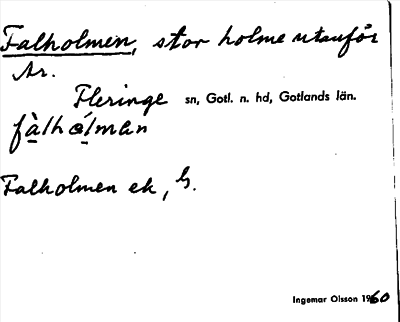 Falholmen, stor holme utanför
Ar.
Fleringe sn, Gotl. n. hd, Gotlands län.
fàlhólman
Falholmen ek, G.
Ingemar Olsson 1960